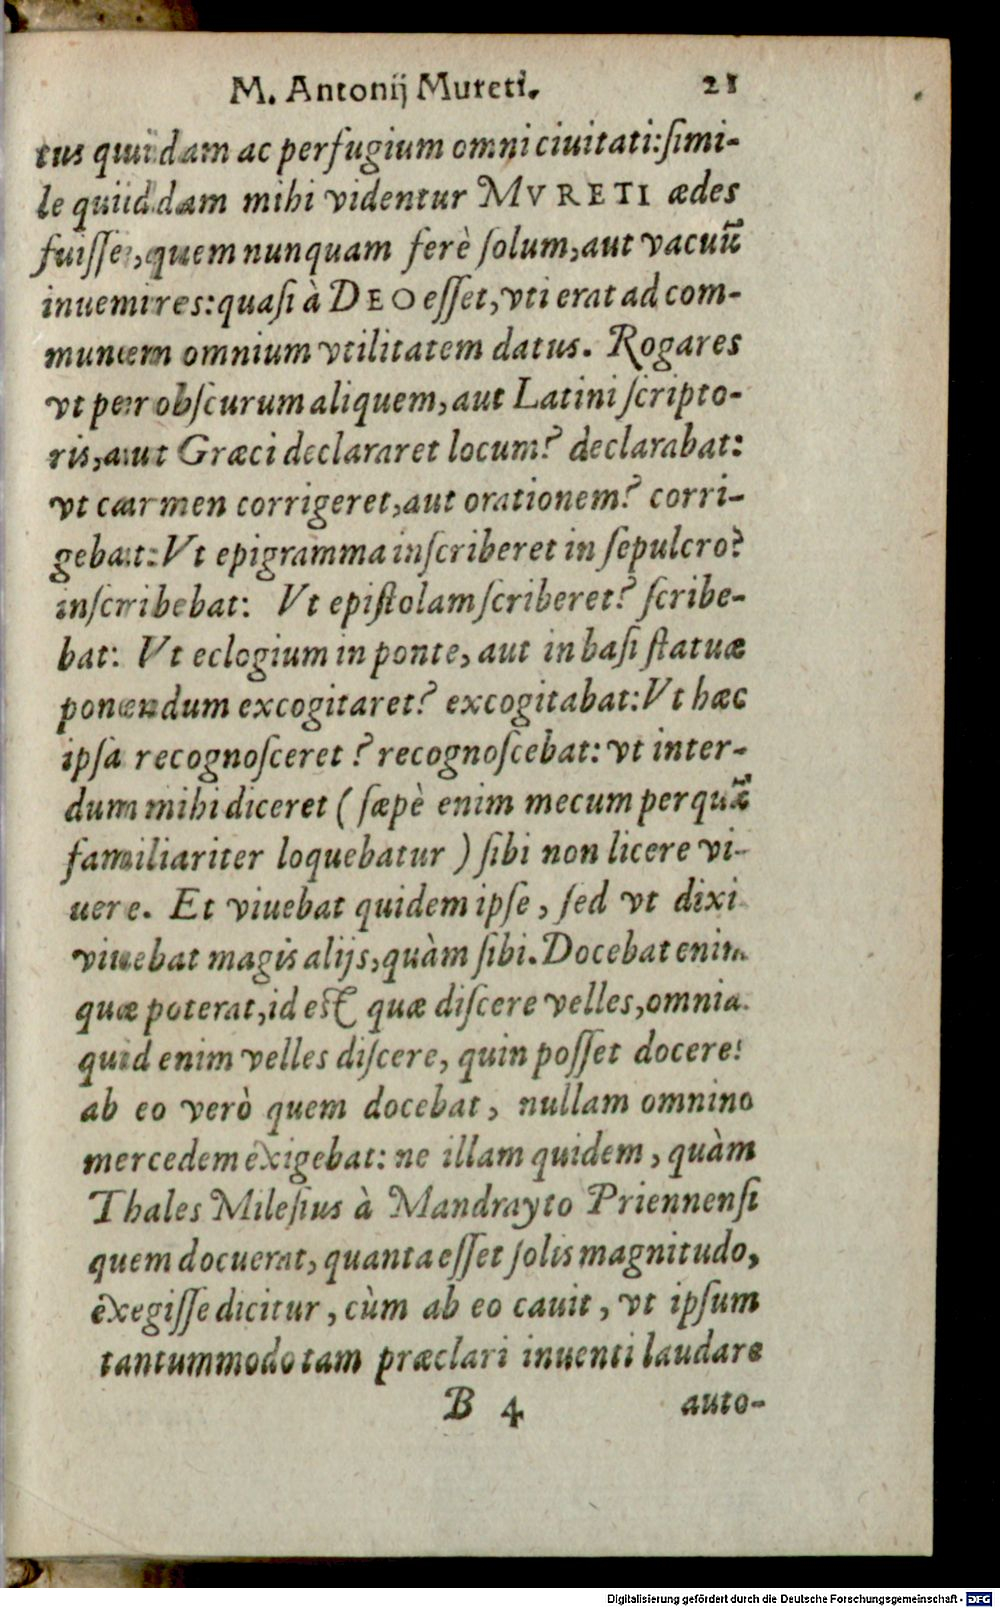 M. Antonij Mureti. 21
tus quidam ac perfugium omni ciuitati: ſimi-
le quiddam mihi videntur MVRETI ædes
fuiſſe, quem nunquam ferè ſolum, aut vacuũ
inuenires: quaſi à DEO eſſet, vti erat ad com-
munem omnium vtilitatem datus. Rogares
vt per obſcurum aliquem, aut Latini ſcripto-
ris, aut Græci declararet locum? declarabat:
vt carmen corrigeret, aut orationem? corri-
gebat: Vt epigramma inſcriberet in ſepulcro?
inſcribebat: Vt epiſtolam ſcriberet? ſcribe-
bat: Vt eclogium in ponte, aut in baſi ſtatuæ
ponendum excogitaret? excogitabat: Vt hæc
ipſa recognoſceret? recognoſcebat: vt inter-
dum mihi diceret (ſæpè enim mecum perquã
familiariter loquebatur) ſibi non licere vi-
uere. Et viuebat quidem ipſe, ſed vt dixi
viuebat magis alijs, quàm ſibi. Docebat enim
quæ poterat, id eſt quæ diſcere velles, omnia.
quid enim velles diſcere, quin poſſet docere?
ab eo verò quem docebat, nullam omnino
mercedem exigebat: ne illam quidem, quàm
Thales Mileſius à Mandrayto Priennenſi
quem docuerat, quanta eſſet ſolis magnitudo,
exegiſſe dicitur, cùm ab eo cauit, vt ipſum
tantummodo tam præclari inuenti laudare
B 4 auto-
Digitalisierung gefördert durch die Deutsche Forschungsgemeinschaft - DFG